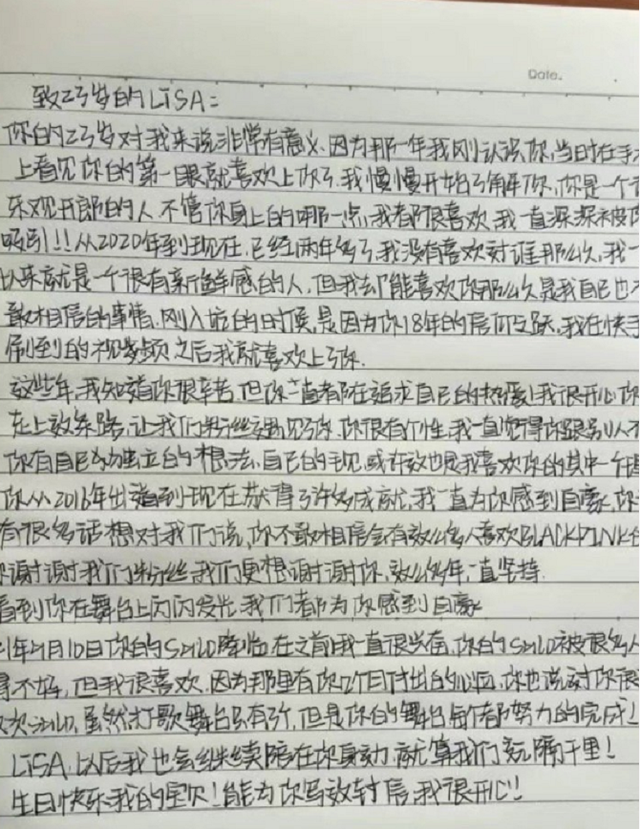 Date.
致23岁的LISA：
你的23岁对我来说非常有意义、因为那一年我刚认识你，当时在手
上看见你的第一眼就喜欢上你了，我慢慢开始了解你，你是一个
乐观开朗的人 不管你身上的哪一点，我都很喜欢 我一直深深被你
吸引!! 从2020年到现在，已经两年多了，我没有喜欢过谁那么久，我一
以来就是一个很有新鲜感的人，但我却能喜欢你那么久是我自己也不
敢相信的事情、刚入站的时候，是因为你18年的 我在快手
刷到的视频 之后我就喜欢上了你.
这些年，我知道你很辛苦，但你一直都在追求自己的热爱!我很开心你
走上这条路，让我们粉丝遇见了你、你很有个性，我一直觉得你跟别人不
你有自己独立的想法、自己的 或许这也是我喜欢你的其中一个
你从2016年出道到现在获得了许多成就，我一直为你感到自豪，你
有很多话想对我们说，你不敢相信会有这么多人喜欢BLACKPINK
谢谢我们粉丝 我们更想谢谢你，这么多年一直坚持.
看到你在舞台上闪闪发光 我们都为你感到自豪
1年9月10日你的SOLO降临 在之前我一直很兴奋，你的SOLO被很多人
得不好，但我很喜欢，因为那里有你2个月付出的心血，你也说过你很
次SOLO，虽然打歌舞台只有 但是你的舞台每个都努力的完成!
LISA 以后我也会继续陪在你身边 就算我们 隔千里!
生日快乐我的宝贝! 能为你写这封信，我很开心!